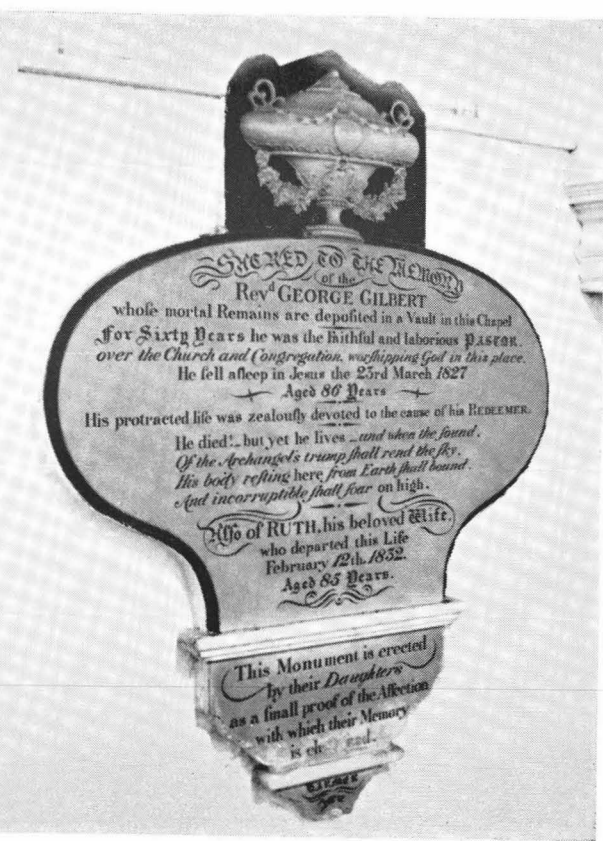 SACRED TO THE MEMORY
of the
Revd GEORGE GILBERT
whoſe mortal Remains are depoſited in a Vault in this Chapel
For Sixty Years he was the Faithful and laborious PASTOR.
over the Church and Congregation, worſhipping God in this place.
He fell aſleep in Jesus the 23rd March 1827
Aged 86 Years
His protracted life was zealouſly devoted to the cause of his REDEEMER.
He died!.. but yet he lives .. and when the ſound,
Of the Archangel's trump ſhall rend the ſky,
His body reſting here from Earth ſhall bound.
And incorruptible ſhall ſoar on high.
Alſo of RUTH, his beloved Wife,
who departed this Life
February 12th. 1832.
Aged 85 Years.
This Monument is erected
by their Daughters
as a ſmall proof of the Affection
with which their Memory
is